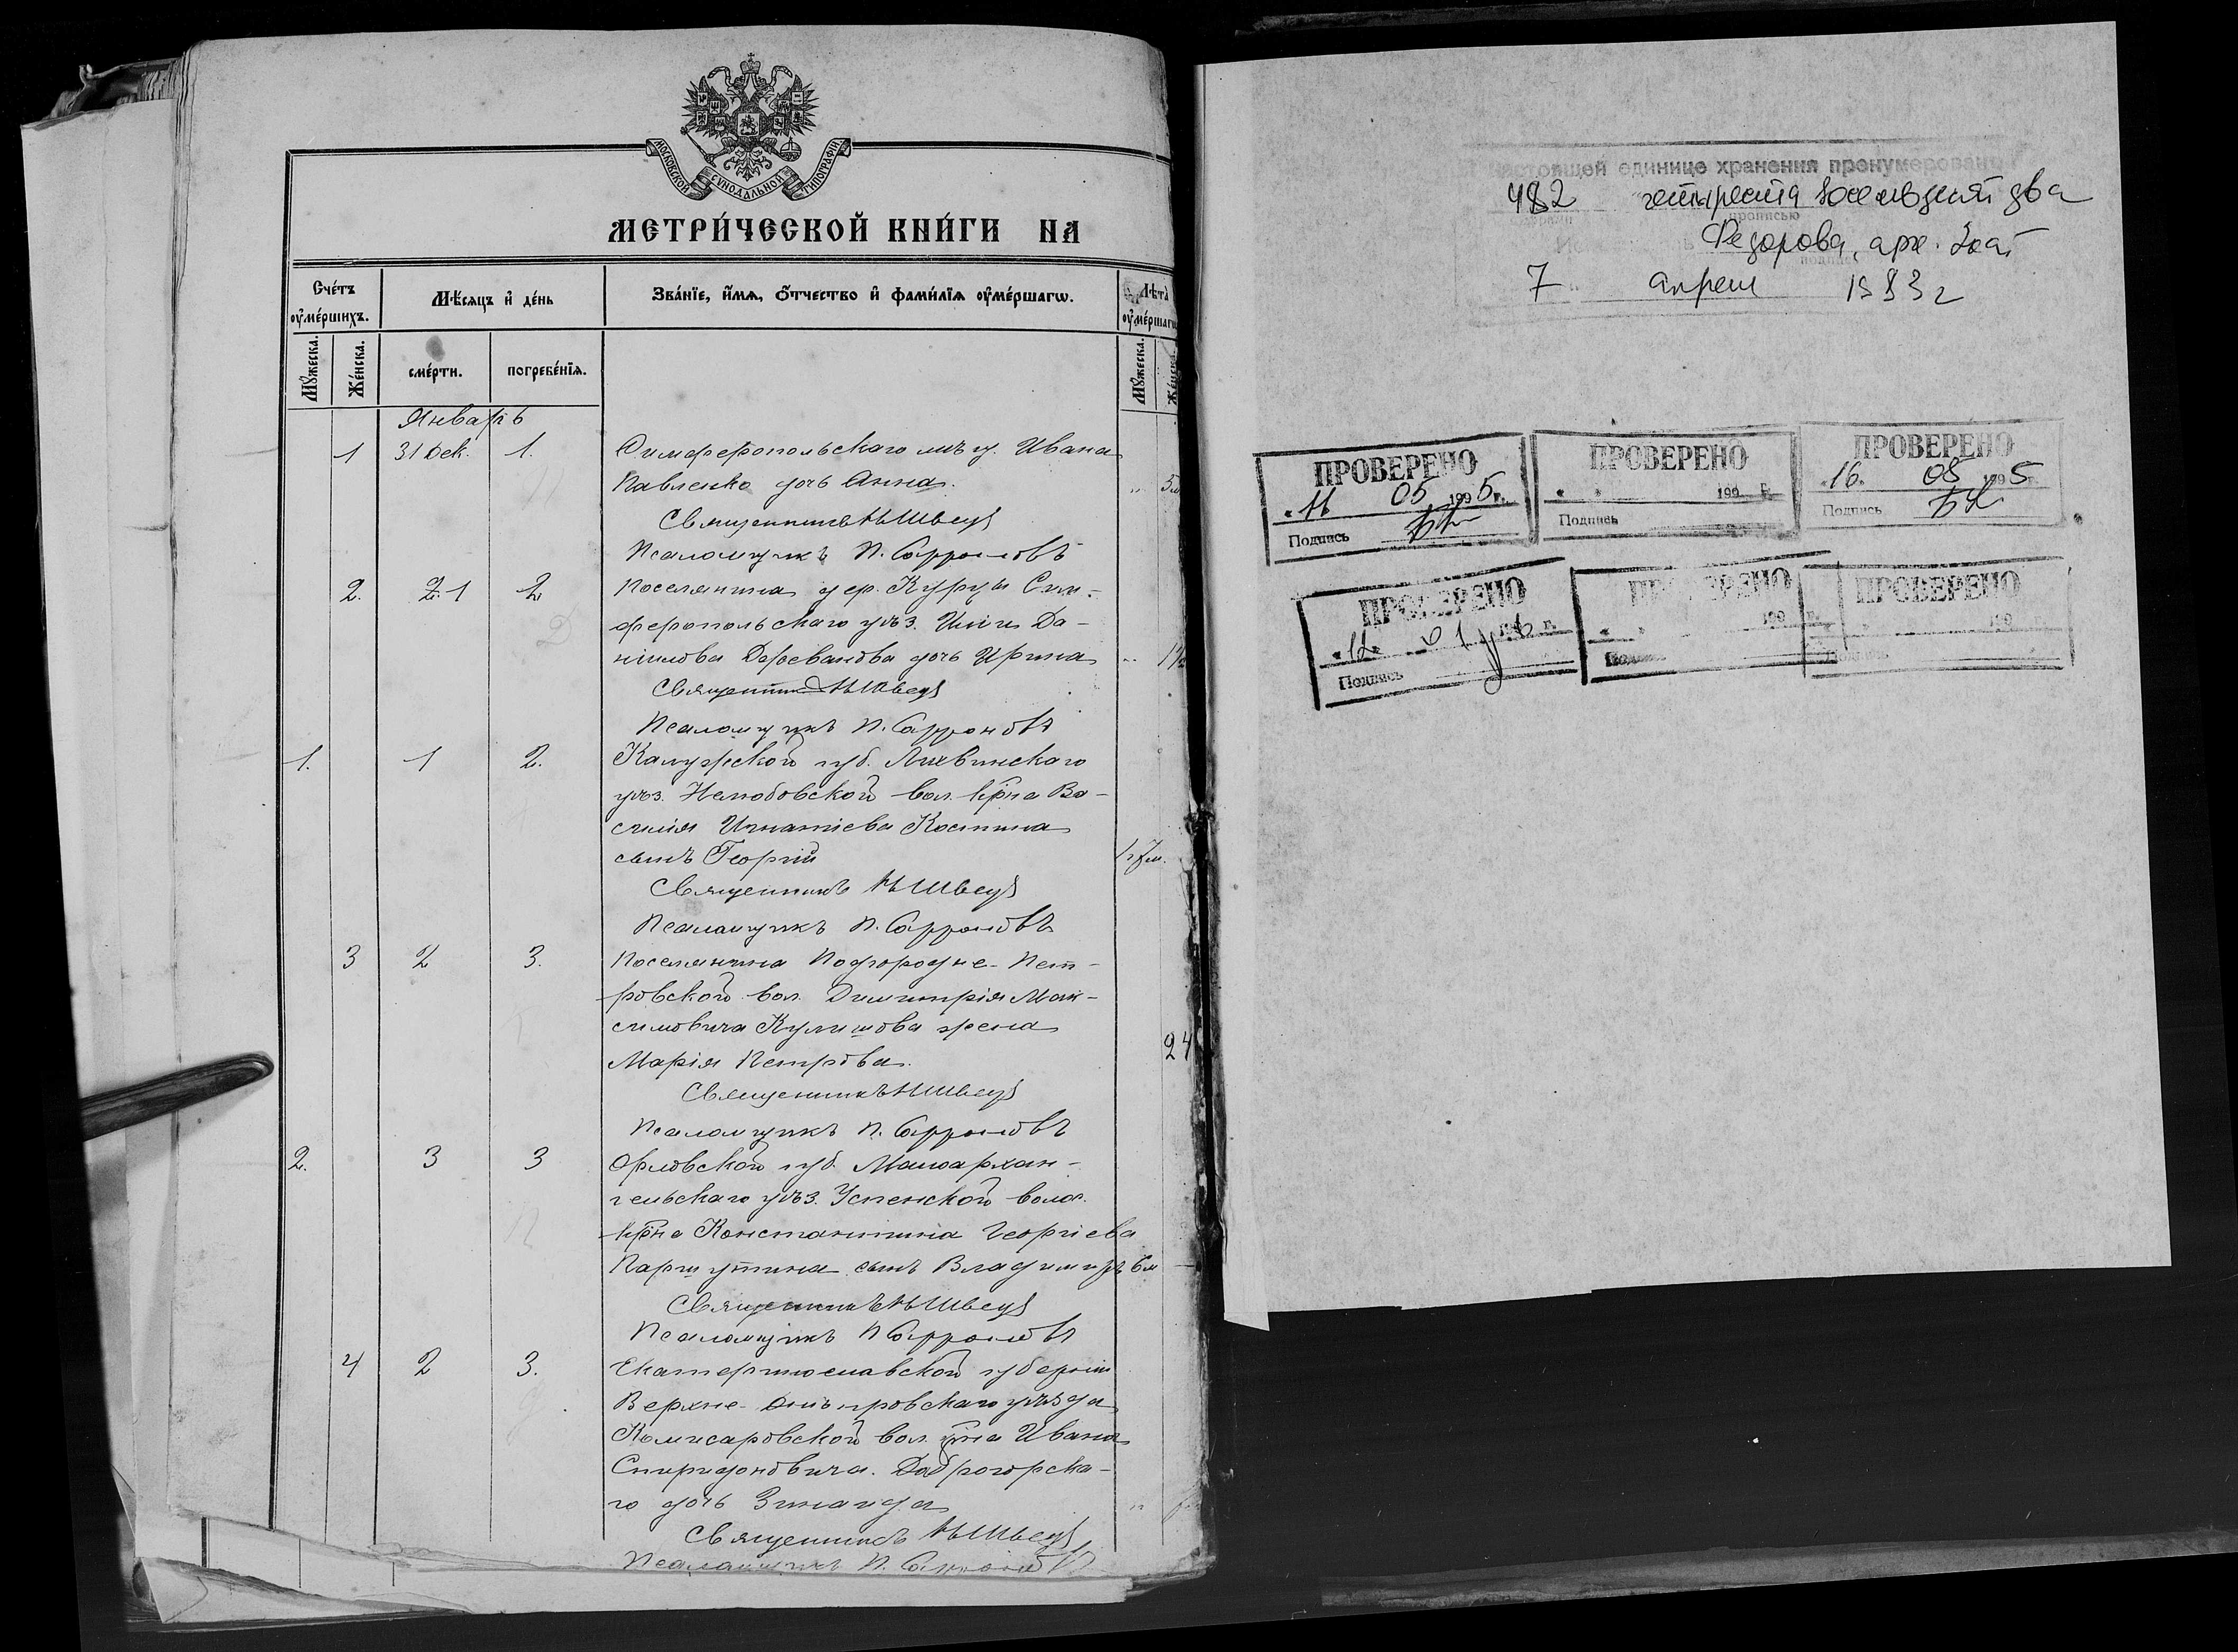 МОСКОВСКОЙ СѴНОДАЛЬНОЙ ТИПОГРАФІИ
МЕТРИ́ЧЕСКОЙ КНИ́ГИ НА
Сче́тъ ᲂу҆ме́ршихъ.
Мѣ́сяцъ и҆ де́нь
Зва́нїе, и҆́мѧ, ѻ҆́тчество и҆ фами́лїѧ ᲂу҆ме́ршагѡ.
Лѣта̀ ᲂу҆ме́ршагѡ
Мꙋ́жеска.
Же́нска.
сме́рти.
погребе́нїѧ.
Мꙋ́жеска.
Же́нска.
Январь
1 31 Дек. 1. Симферопольскаго мѣщ. Ивана
Павленко дочь Анна. " 5м
Священникъ Н Швецъ
Псаломщикъ П. Сафроновъ
2. 2.1 2 Поселянина дер. Курцы Сим-
феропольскаго уѣз. Иліи Да-
нилова Дореванова дочь Ирина "
Священникъ Н Швецъ
Псаломщикъ П. Сафроновъ
1. 1 2. Калужской губ. Лихвинскаго
уѣз. Нелюбовской вол. кр̄на Ва-
силія Игнатіева Костина
сынъ Георгій
Священникъ Н Швецъ
Псаломщикъ П. Сафроновъ
3 2 3. Поселянина Подгородне-Пет-
ровской вол. Димитрія Мак-
симовича Кулишова жена
Марія Петрова. 24
Священникъ Н Швецъ
Псаломщикъ П. Сафроновъ
2. 3 3 Орловской губ. Малоархан-
гельскаго уѣз. Успенской волос.
кр̄на Константина Георгіева
Паршутина сынъ Владимиръ 6м
Священникъ Н Швецъ
Псаломщикъ П Сафроновъ
4 2 3. Екатеринославской губерніи
Верхне-Днѣпровскаго уѣзда
Комисаровской вол. кр̄на Ивана
Спиридоновича Доброгорска-
го дочь Зинаида "
Священникъ Н Швецъ
Псаломщикъ П. Сафроновъ
настоящей единице хранения пронумеровано
482 четыреста восемьдесят два
прописью
Федорова, арх.
7 апреля 1983 г
ПРОВЕРЕНО
"16" 05 1995 г.
Подпись
ПРОВЕРЕНО
" " 199 г.
Подпись
ПРОВЕРЕНО
"16" 05 1995 г.
Подпись
ПРОВЕРЕНО
"12" 01 1996 г.
Подпись
ПРОВЕРЕНО
" " 199 г.
Подпись
ПРОВЕРЕНО
" " 199 г.
Подпись